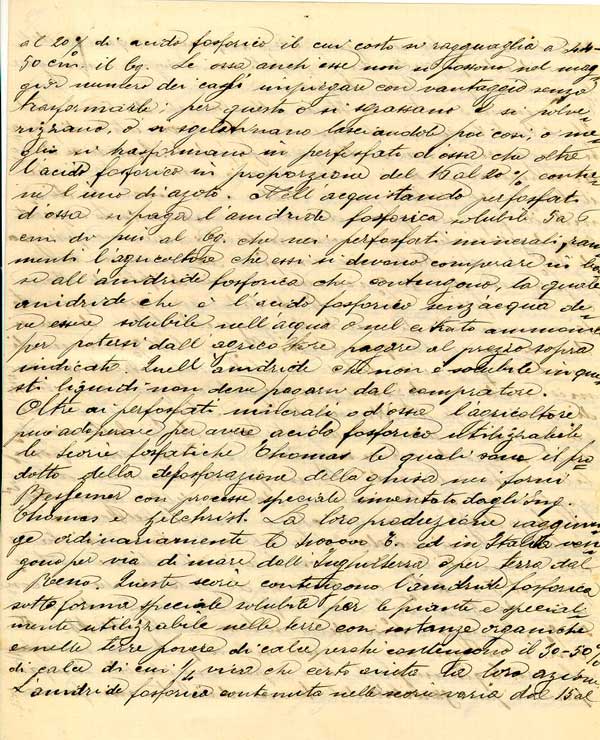 al 20% di acido fosforico il cui costo si ragguaglia a 44-
50 cm. il Cg. Le ossa anch'esse non si possono nel mag-
gior numero dei casi impiegare con vantaggio senza
trasformarle: per questo o si sgrassano e si polve-
rizzano, o si sgelatinano lasciandole poi così, o me-
glio si trasformano in perfosfati d'ossa che oltre
l'acido fosforico in proporzione del 15 al 20% contie-
ne l'uno di azoto. Nell'acquistando perfosfati
d'ossa si paga l'anidride fosforica solubile 5 a 6
cm. di più al Cg. che nei perfosfati minerali,
menti l'agricoltore che essi si devono comperare in ba-
se all'anidride fosforica che contengono, la quale
anidride che è l'acido fosforico senz'acqua de-
ve essere solubile nell'acqua o nel citrato ammonico
per potersi dall'agricoltore pagare al prezzo sopra
indicato. Quell'anidride che non è solubile in que-
sti liquidi non deve pagarsi dal compratore.
Oltre ai perfosfati minerali o d'ossa l'agricoltore
può adoperare per avere acido fosforico utilizzabile
le scorie fosfatiche Thomas le quali sono il pro-
dotto della defosforazione della ghisa nei forni
Bessemer con processo speciale inventato dagli Ing.
Thomas e Gilchrist. La loro produzione raggiun-
ge ordinariamente le T. ed in Italia ven-
gono per via di mare dall'Inghilterra o per terra dal
Reno. Queste scorie contengono l'anidride fosforica
sotto forma speciale solubile per le piante e special-
mente utilizzabile nelle terre con sostanze organiche
e nelle terre povere di calce perchè contengono il 30-50%
di calce di cui 1/4 viva che certo aiuta la loro azione
L'anidride fosforica contenuta nelle scorie varia dal 15 al